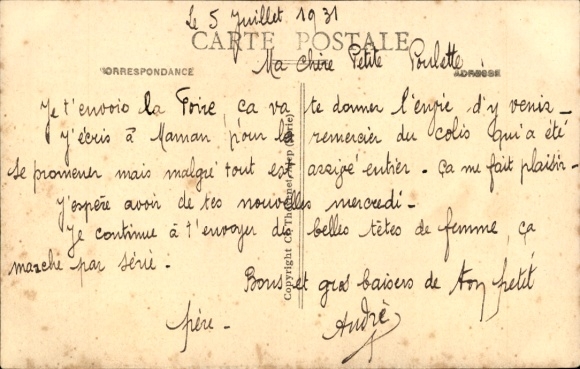 Le 5 Juillet 1931
CARTE POSTALE
Ma Chère Petite Poulette
CORRESPONDANCE
ADRESSE
Je t'envoie la Foire, ça va te donner l'envie d'y venir -
J'écris à Maman pour la remercier du colis qui a été
se promener mais malgré tout est arrivé entier - Ça me fait plaisir -
J'espère avoir de tes nouvelles mercredi -
Je continue à t'envoyer des belles têtes de femme, ça
marche par série -
Bons et gros baisers de ton petit
frère -
André
Copyright (Série)